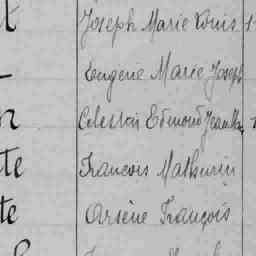 Joseph Marie Louis
Eugene Marie Joseph
Celestin Edmond Jean
te François Mathurin
te Arsène François